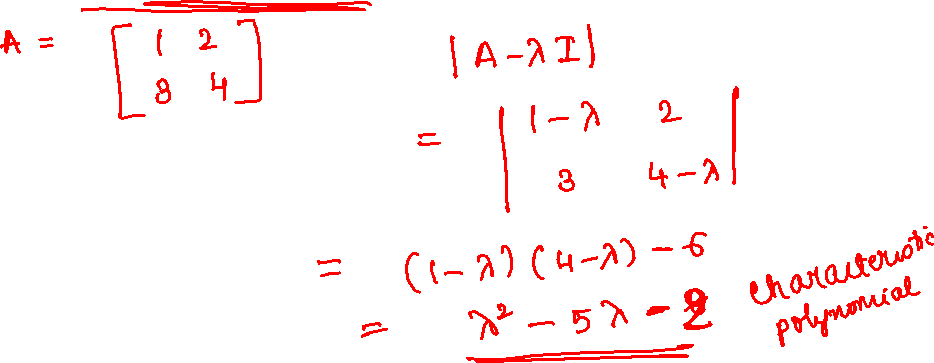 A = [ 1 2
3 4 ]
|A - λI|
= | 1-λ 2
3 4-λ |
= (1-λ) (4-λ) - 6
= λ² - 5λ - 2
characteristic
polynomial